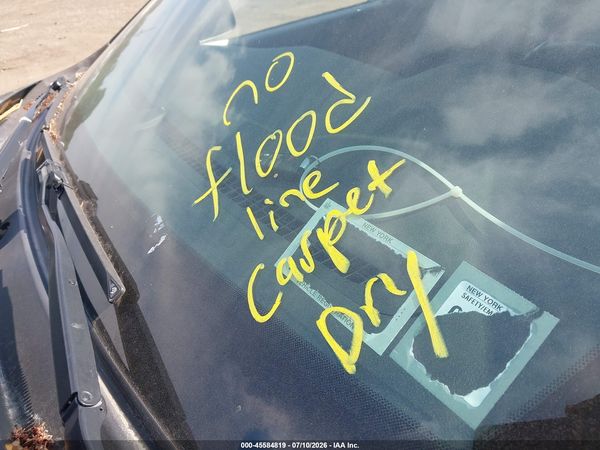 no
flood
line
carpet
Dry
NEW YORK
NEW YORK
SAFETY/EM
000-45584819 - 07/10/2026 - IAA Inc.